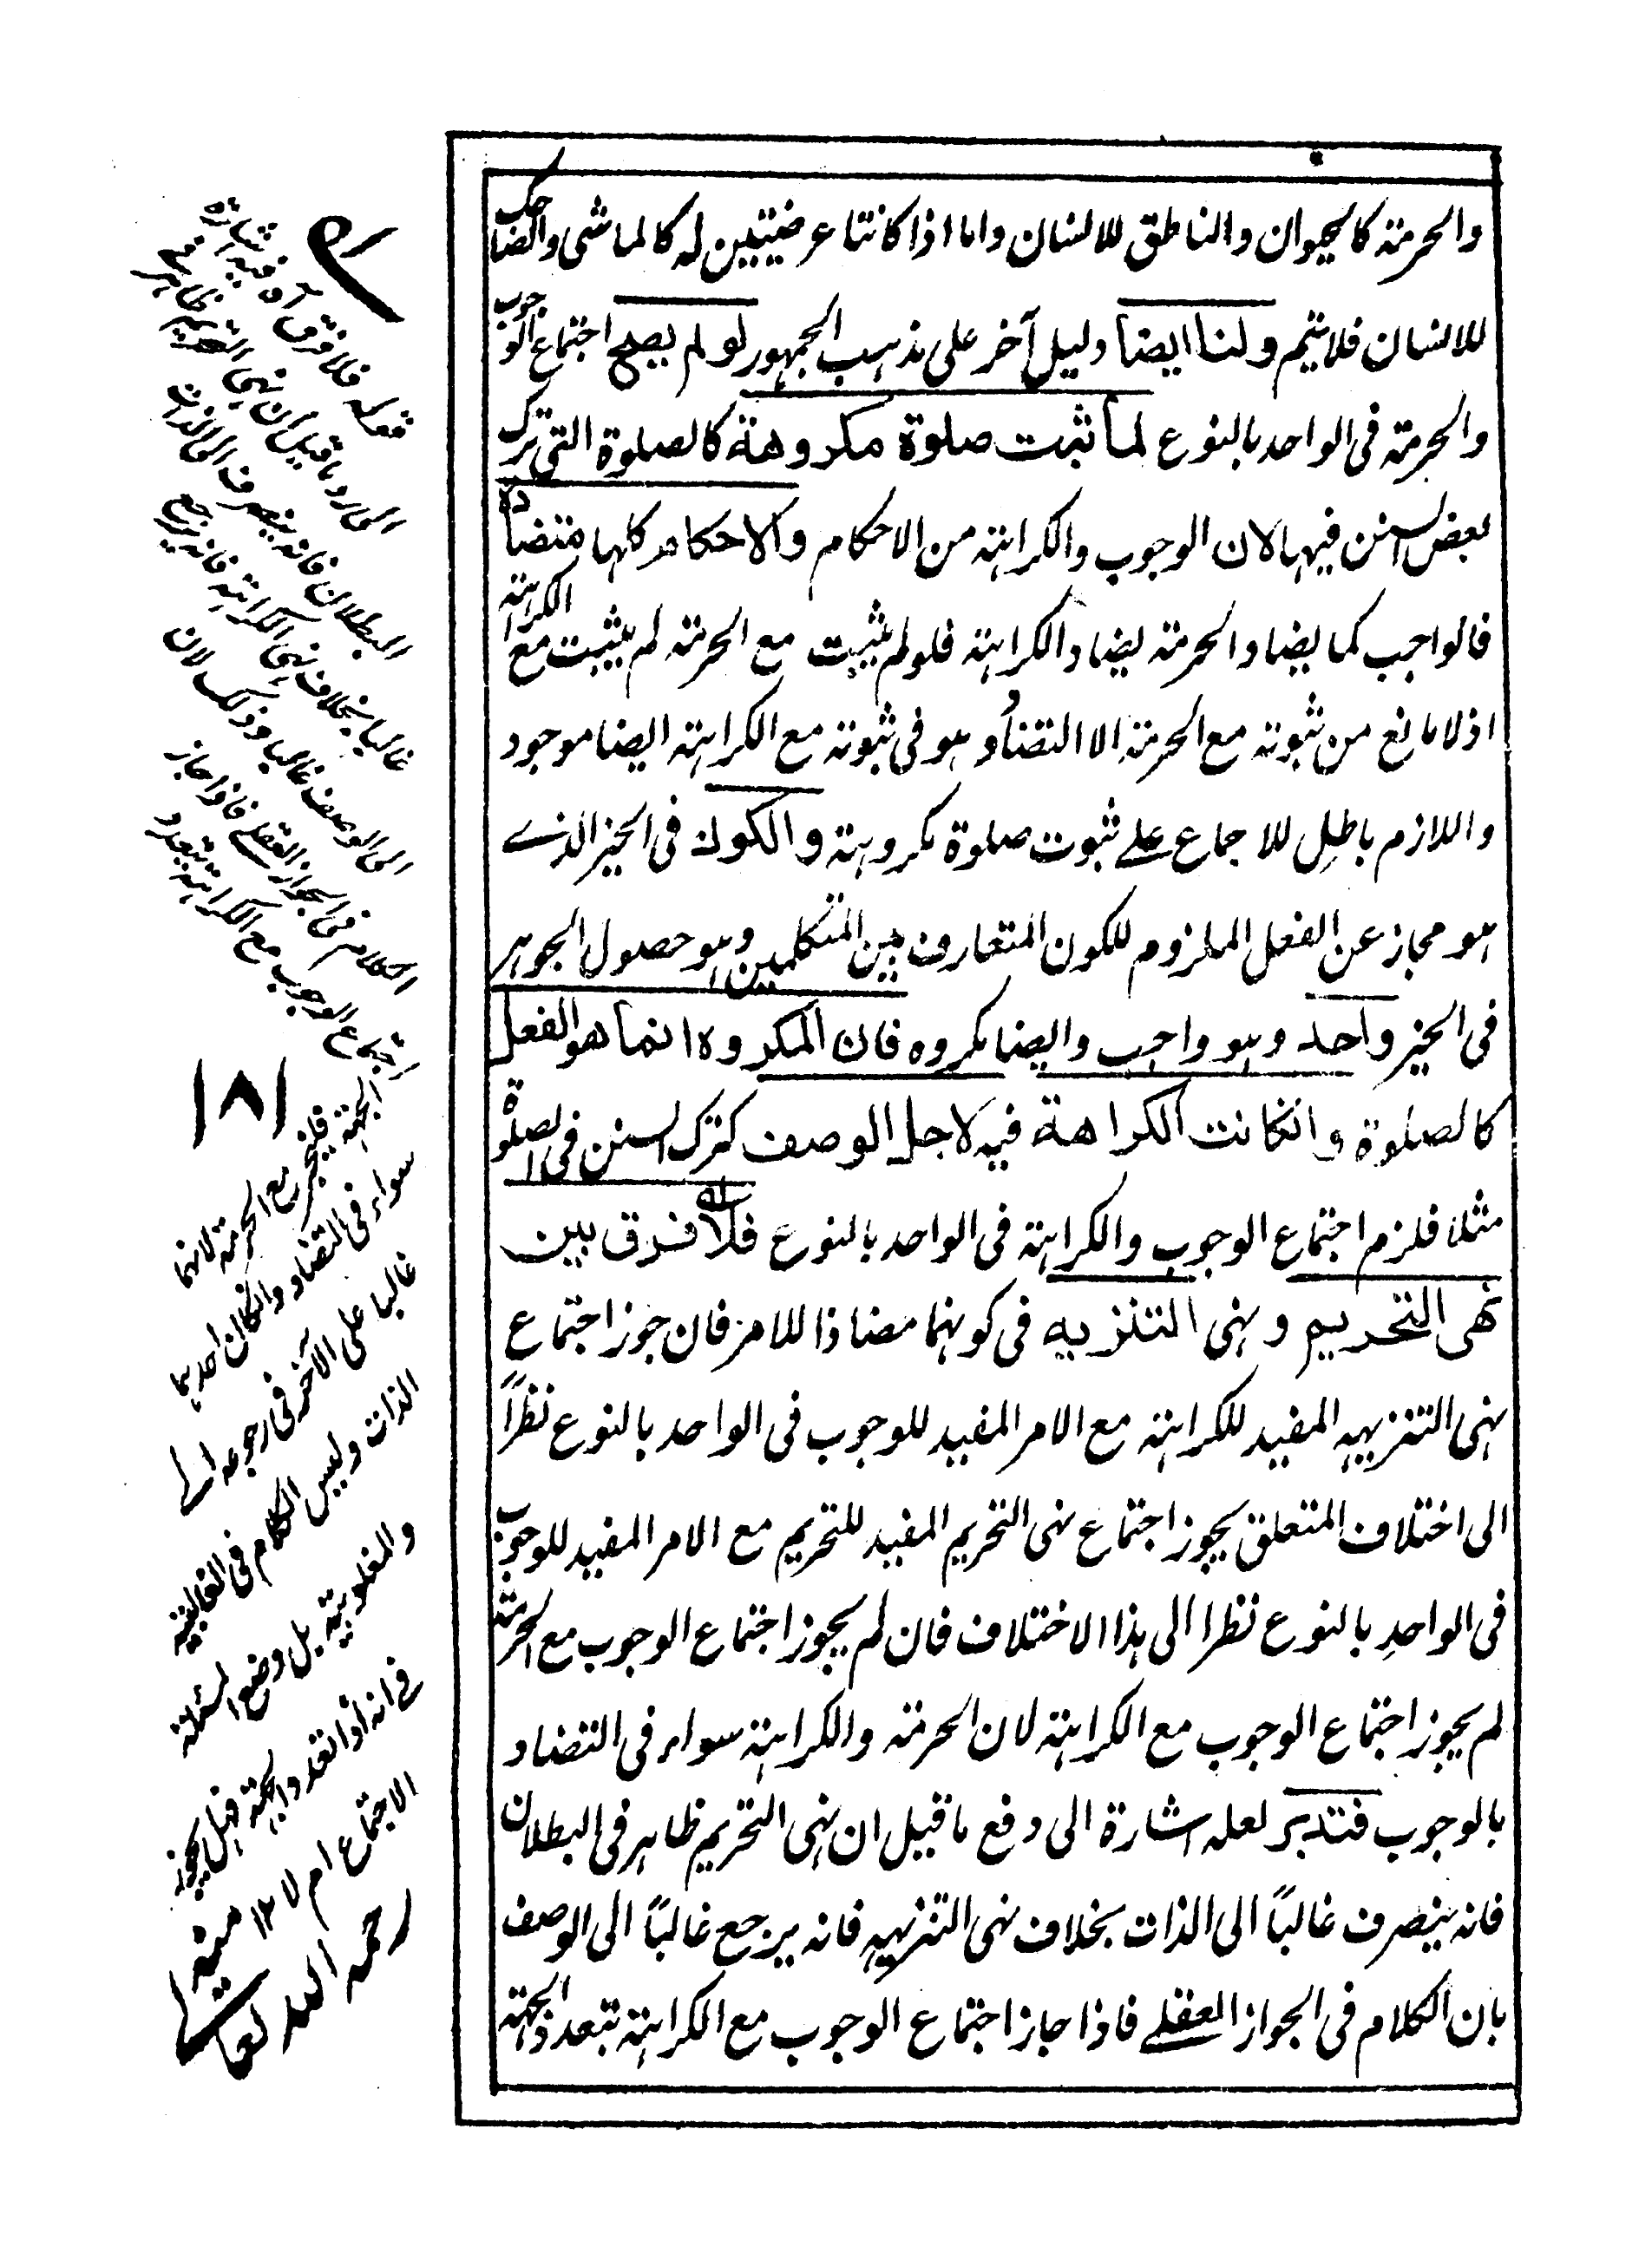 والحرمة كالحيوان والناطق للانسان واما اذا كانتا عرضيتين له كالماشى والضاحك
للانسان فلا يتم ولنا ايضا دليل آخر على مذهب الجمهور لو لم يصح اجتماع الوجوب
والحرمة فى الواحد بالنوع لما ثبت صلوة مكروهة كالصلوة التى ترك
بعض السنن فيها لان الوجوب والكراهة من الاحكام والاحكام كلها متضادة
فالواجب كما يضاد الحرمة يضاد الكراهة فلو لم يثبت مع الحرمة لم يثبت مع الكراهة
اذ لا مانع من ثبوته مع الحرمة الا التضاد وهو فى ثبوته مع الكراهة ايضا موجود
واللازم باطل للاجماع على ثبوت صلوة مكروهة والكون فى الحيز الذى
هو مجاز عن الفعل الملزوم للكون المتعارف بين المتكلمين وهو حصول الجوهر
فى الحيز واحد وهو واجب وايضا مكروه فان المكروه انما هو الفعل
كالصلوة وانكانت الكراهة فيه لاجل الوصف كترك السنن فى الصلوة
مثلا فلزم اجتماع الوجوب والكراهة فى الواحد بالنوع فلا فرق بين
نهى التحريم ونهى التنزيه فى كونهما مضادا للامر فان جوز اجتماع
نهى التنزيهه المفيد للكراهة مع الامر المفيد للوجوب فى الواحد بالنوع نظرًا
الى اختلاف المتعلق يجوز اجتماع نهى التحريم المفيد للتحريم مع الامر المفيد للوجوب
فى الواحد بالنوع نظرا الى هذا الاختلاف فان لم يجوز اجتماع الوجوب مع الحرمة
لم يجوز اجتماع الوجوب مع الكراهة لان الحرمة والكراهة سواء فى التضاد
بالوجوب فتدبر لعله اشارة الى دفع ما قيل ان نهى التحريم ظاهر فى البطلان
فانه ينصرف غالبًا الى الذات بخلاف نهى التنزيهه فانه يرجع غالبًا الى الوصف
بان الكلام فى الجواز العقلى فاذا جاز اجتماع الوجوب مع الكراهة بتعدد الجهة
قوله فلا فرق آه فيه اشارة
الى رد ما قيل ان نهى التحريم ظاهر فى
البطلان فانه ينصرف الى الذات
غالبا بخلاف نهى الكراهة فانه يرجع
الى الوصف غالبا وذلك لان
الكلام فى الجواز العقلى فاذا جاز
اجتماع الوجوب مع الكراهة بتعدد
١٨١
الجهة فليجز مع الحرمة لانهما
سواء فى التضاد وانكان احدهما
غالبا على الآخر فى رجوعه الى
الذات وليس الكلام فى الغالبية
والمغلوبية بل وضع المسئلة
فى انه اذا تعدد الجهة فهل يجوز
الاجتماع ام لا ١٢ منه
رحمه الله تعالى